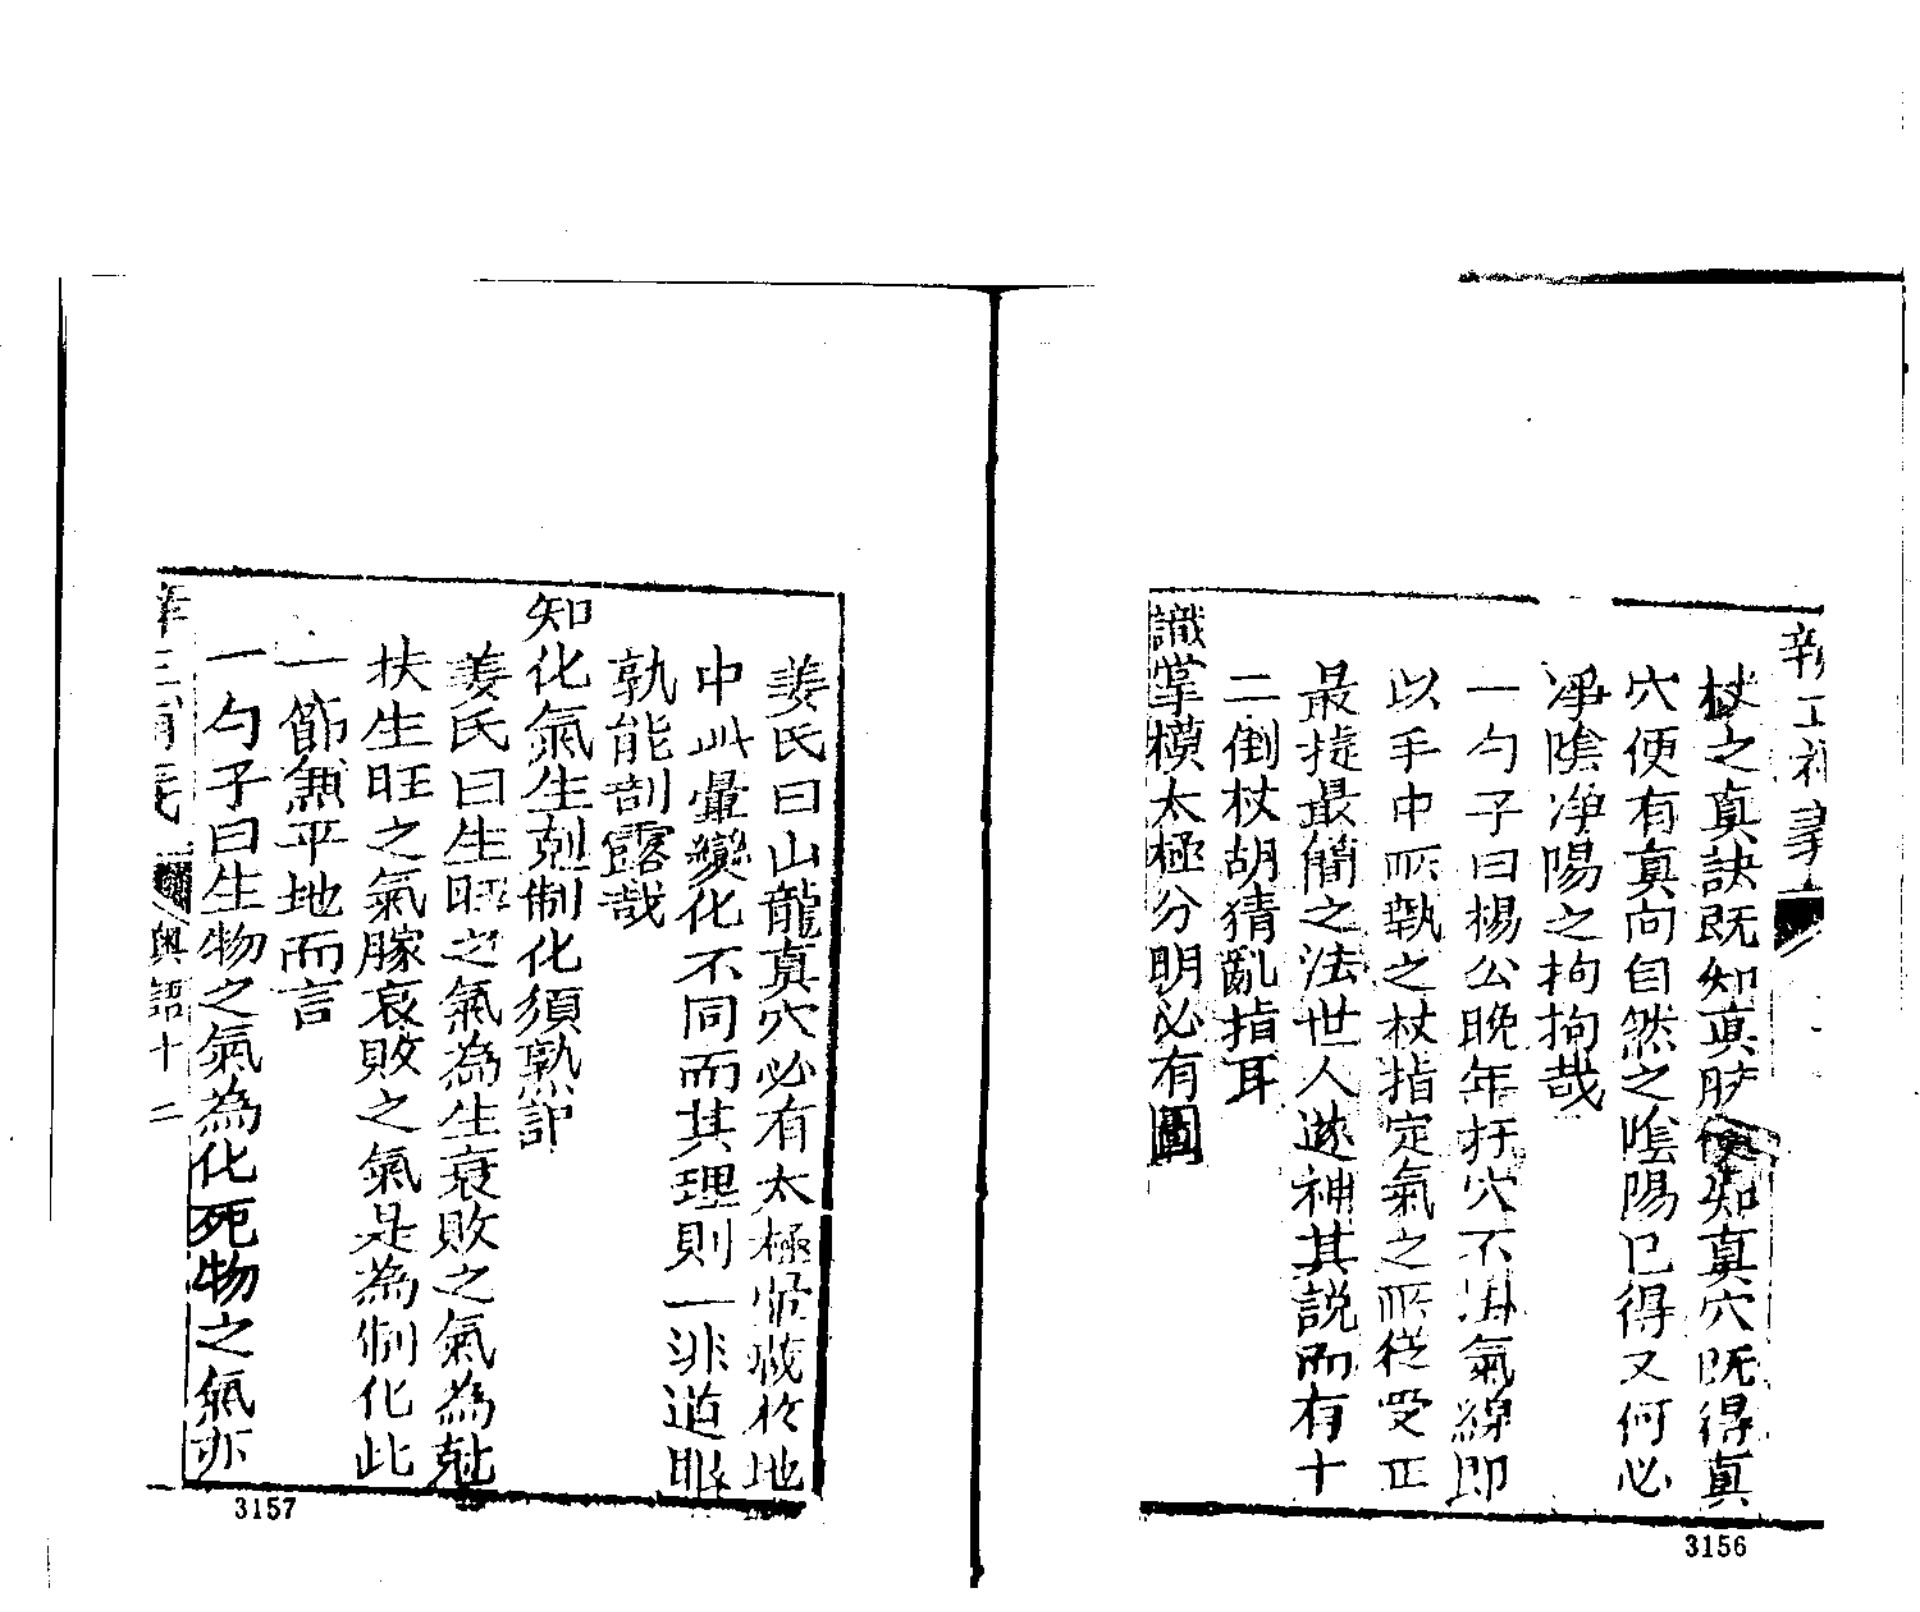 杖之真訣既知真脉便知真穴既得真
穴便有真向自然之陰陽已得又何必
淨陰淨陽之拘拘哉
一勺子曰楊公晚年扦穴不掛氣線即
以手中所執之杖指定氣之所從受正
最捷最簡之法世人遂補其説而有十
二倒杖胡猜亂指耳
識掌模太極分明必有圖
3156
姜氏曰山龍真穴必有太極暈藏於地
中此暈變化不同而其理則一非道眼
孰能剖露哉
知化氣生剋制化須熟記
姜氏曰生旺之氣為生衰敗之氣為尅
扶生旺之氣勝衰敗之氣是為制化此
一節兼平地而言
一勺子曰生物之氣為化死物之氣亦
奥語十二
3157